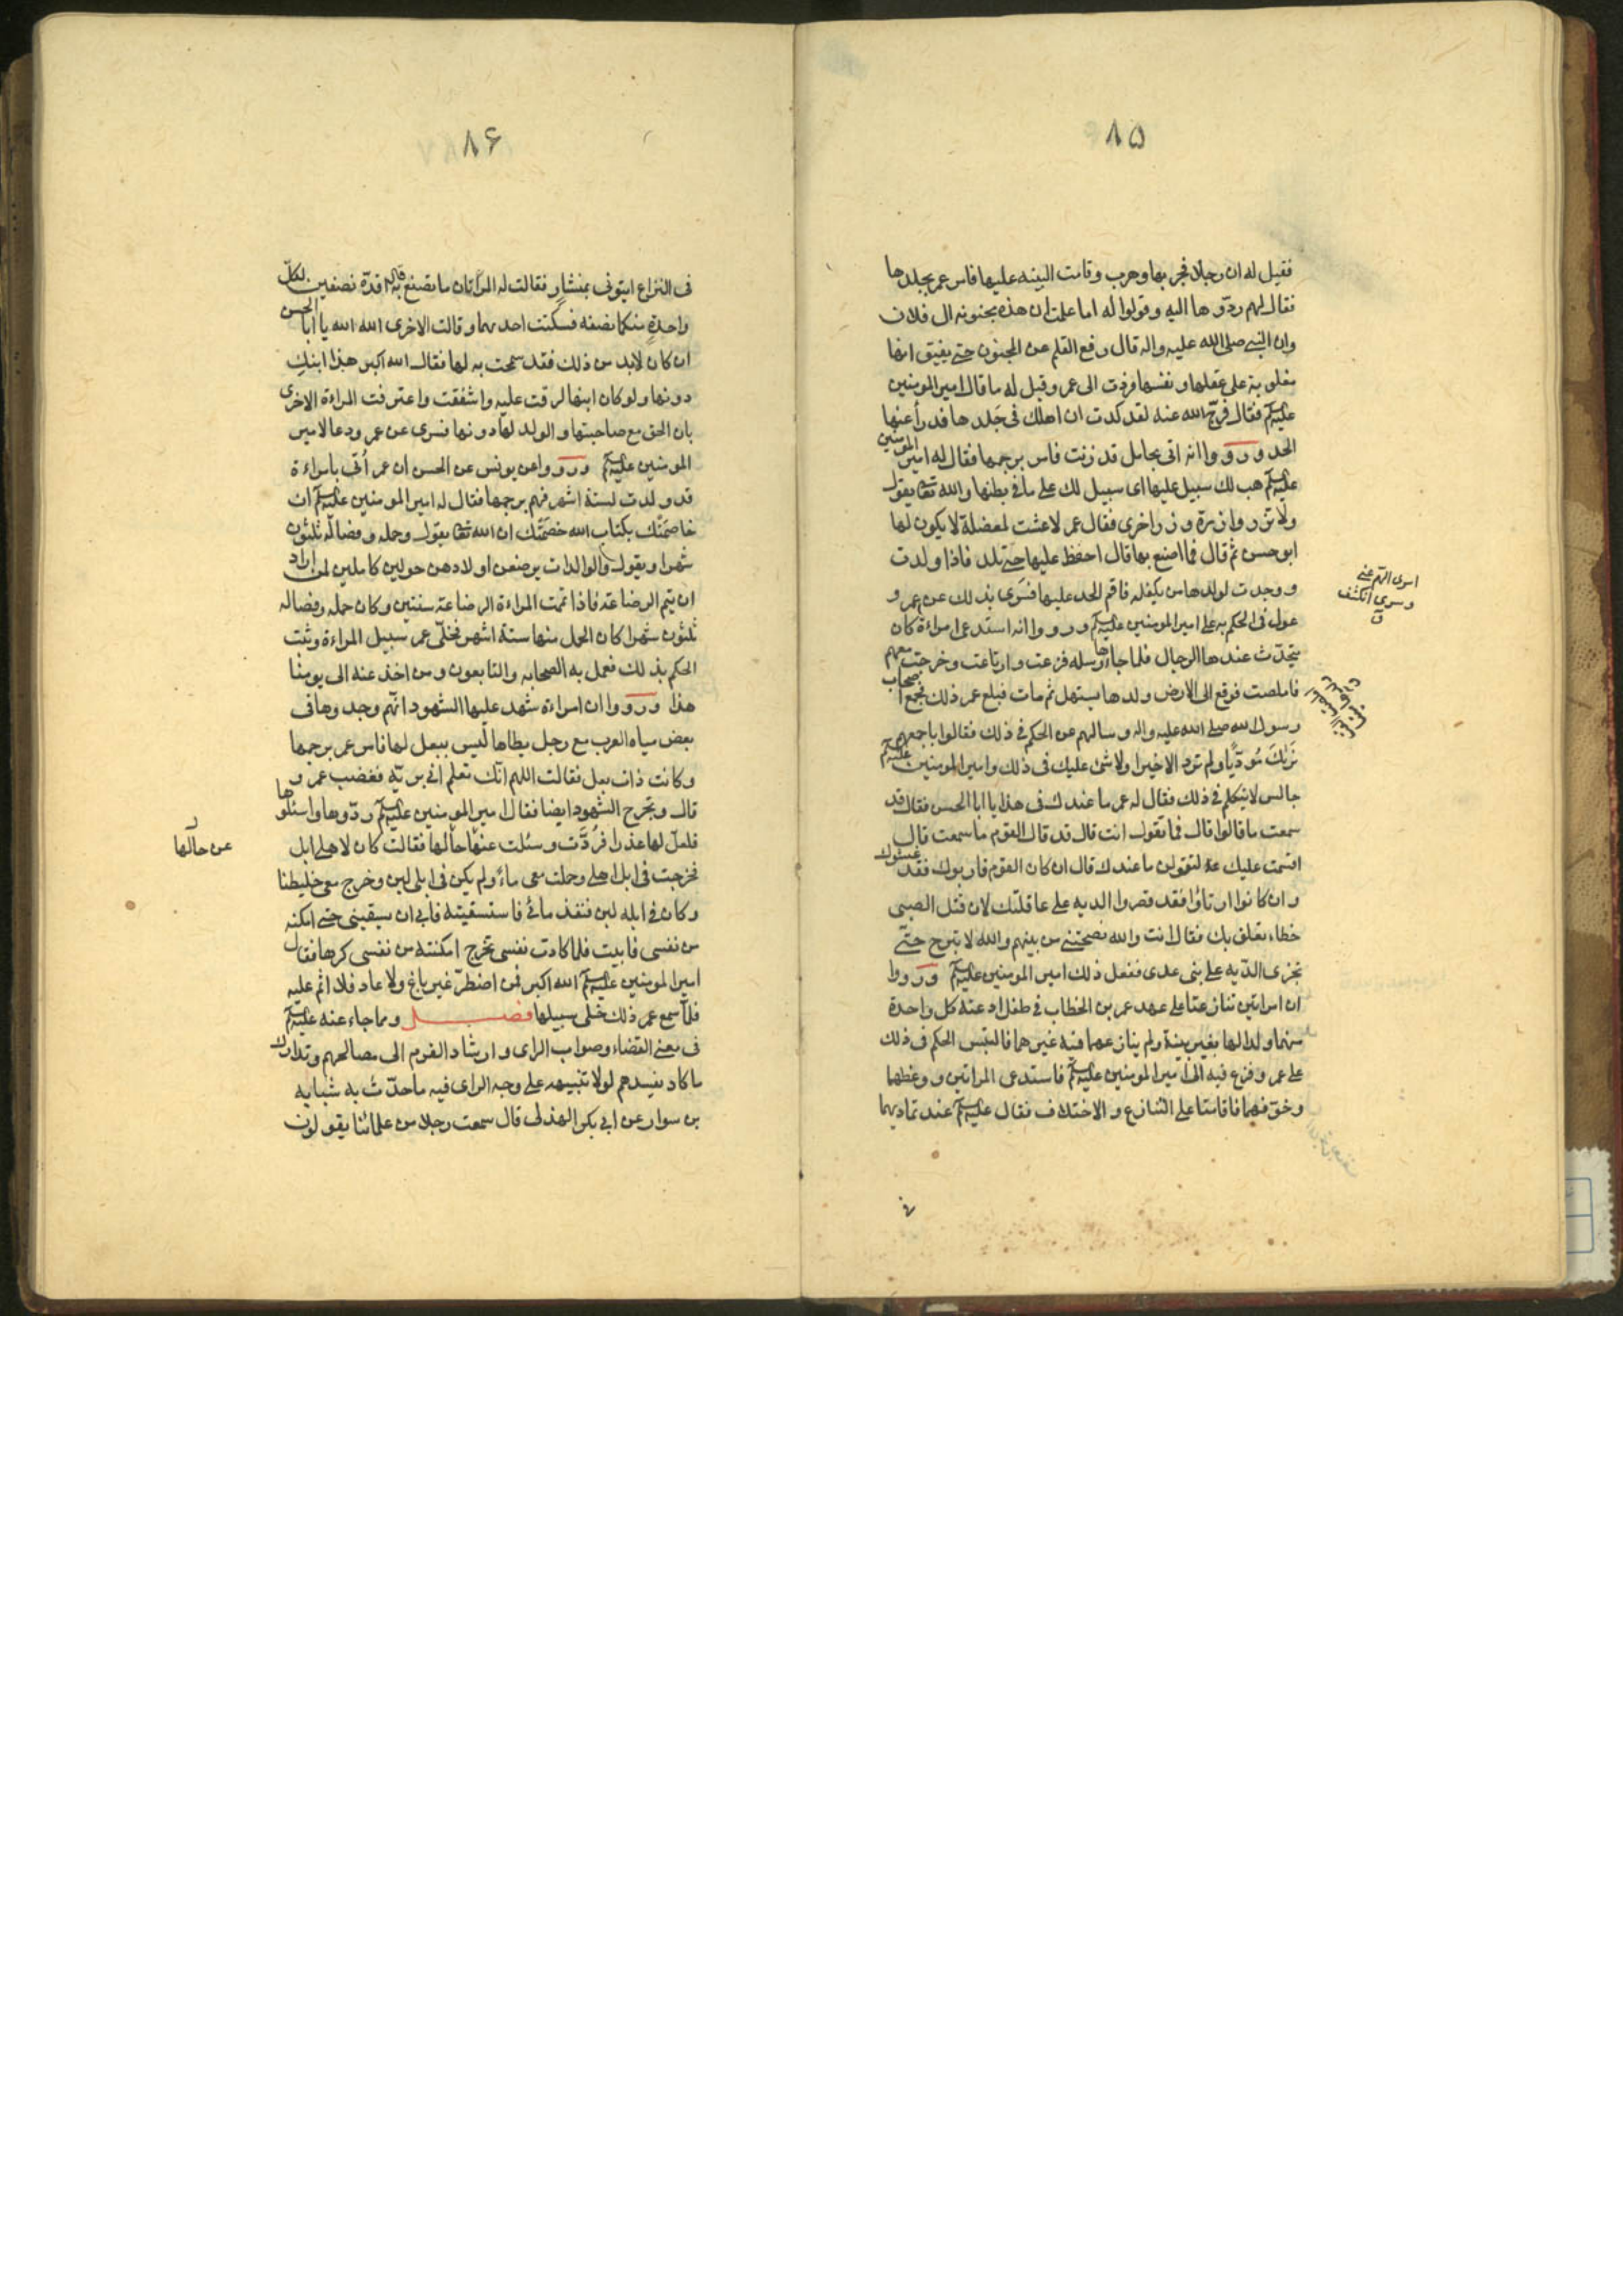 ۸۵
فقيل له ان رجلا فجر بها وهرب وقامت البينه عليها فامر عمر بجلدها
فقال لهم ردّوها اليه وقولوا له اما علمت ان هذه مجنونه ال فلان
وان النبي صلى الله عليه واله قال رفع القلم عن المجنون حتى يفيق انها
مغلوبة على عقلها ونفسها فردّت الى عمر وقيل له ما قال امير المومنين
عليه السلم فقال فرّج الله عنه لقد كدت ان اهلك في جَلدها فدرأ عنها
الحد ورووا انه اتى بحامل قد زنت فامر برجمها فقال له امير المومنين
عليه السلم هب لك سبيل عليها اى سبيل لك على ما في بطنها والله تعالى يقول
ولا تزر وازرة وزر اخرى فقال عمر لا عشت لمعضلة لا يكون لها
ابو حسن ثم قال فما اصنع بها قال احفظ عليها حتى تلد فاذا ولدت
ووجدت لولدها من يكفله فاقم الحد عليها فسرى بذلك عن عمر و
عول في الحكم به على امير المومنين عليه السلم ورووا انه استدعى امراءة كان
يتحدّث عندها الرجال فلما جاءها رسله فزعت وارتاعت وخرجت معهم
فاملصت فوقع الى الارض ولدها يستهل ثم مات فبلغ عمر ذلك فجمع اصحاب
رسول الله صلى الله عليه واله وسالهم عن الحكم في ذلك فقالوا باجمعهم
نَرٰيكَ مُودّبا ولم ترد الا خيرا ولا شئ عليك في ذلك وامير المومنين عليه السلم
جالس لا يتكلم في ذلك فقال له عمر ما عندك في هذا يا ابا الحسن فقال قد
سمعت ما قالوا قال فما تقول انت قال قد قال القوم ما سمعت قال
اقسمت عليك لتقولن ما عندك قال ان كان القوم قاربوك فقد غشوك
وان كانوا ارتاؤا فقد قصروا الديه على عاقلتك لان قتل الصبي
خطاء تعلق بك فقال انت والله نصحتني من بينهم والله لا تبرح حتّى
تجزى الدّيه على بنى عدى ففعل ذلك امير المومنين عليه السلم ورووا
ان امراتين تنازعتا على عهد عمر بن الخطاب في طفل ادعته كل واحدة
منهما ولدا لها بغير بينة ولم ينازعهما فيه غيرهما فالتبس الحكم في ذلك
على عمر وفزع فيه الى امير المومنين عليه السلم فاستدعى المراتين ووعظهما
وخوّفهما فاقامتا على التنازع والاختلاف فقال عليه السلم عند تماديهما
اسرى الهّم عنى
وسرى انكشف
ق
۸۶
في النزاع ايتونى بمنشار فقالت له المرأتان ما تصنع به قال اقدّه نصفين لكلّ
واحدةٍ منكما نصفه فسكتت احديهما وقالت الاخرى الله الله يا ابا الحسن
ان كان لابد من ذلك فقد سمحت به لها فقال الله اكبر هذا ابنك
دونها ولو كان ابنها لرقت عليه واشفقت واعترفت المراءة الاخرى
بان الحق مع صاحبتها والولد لها دونها فسرى عن عمر ودعا لامير
المومنين عليه السلم ورووا عن يونس عن الحسن ان عمر اُتى بامراءة
قد ولدت لستة اشهر فهم برجمها فقال له امير المومنين عليه السلم ان
خاصمَتْك بكتاب الله خصمَتْك ان الله تعالى يقول وحمله وفصاله ثلثون
شهرا ويقول والوالدات يرضعن اولادهن حولين كاملين لمن اراد
ان يتم الرضاعة فاذا تمت المراءة الرضاعة سنتين وكان حمله وفصاله
ثلثون شهرا كان الحمل منها ستة اشهر فخلّى عمر سبيل المراءة وثبت
الحكم بذلك فعمل به الصحابه والتابعون ومن اخذ عنه الى يومنا
هذا ورووا ان امراءة شهد عليها الشهود انّهم وجدوها في
بعض مياه العرب مع رجل يطاها ليس ببعل لها فامر عمر برجمها
وكانت ذات بعل فقالت اللهم انّك تعلم انى بريّه فغضب عمر و
قال وتجرح الشهود ايضا فقال امير المومنين عليه السلم ردّوها واسئلوها
فلعلّ لها عذرا فرُدَّت وسئلت عنها حالها فقالت كان لاهلى ابل
فخرجت في ابل اهلى وحملت معى ماءً ولم يكن في ابلى لبن وخرج معى خليطنا
وكان في ابله لبن فنفذ مائى فاستسقيته فابى ان يسقينى حتى امكنه
من نفسى فابيت فلما كادت نفسى تخرج امكنته من نفسى كرها فقال
امير المومنين عليه السلم الله اكبر فمن اضطرّ غير باغ ولا عاد فلا اثم عليه
فلما سمع عمر ذلك خلى سبيلها فصل ومما جاء عنه عليه السلم
في معنى القضاء وصواب الراى وارشاد القوم الى مصالحهم وتدارك
ما كاد يفسدهم لولا تنبيهه على وجه الراى فيه ما حدّث به شبابه
بن سوار عن ابي بكر الهذلى قال سمعت رجلا من علمائنا يقولون
عن حالها